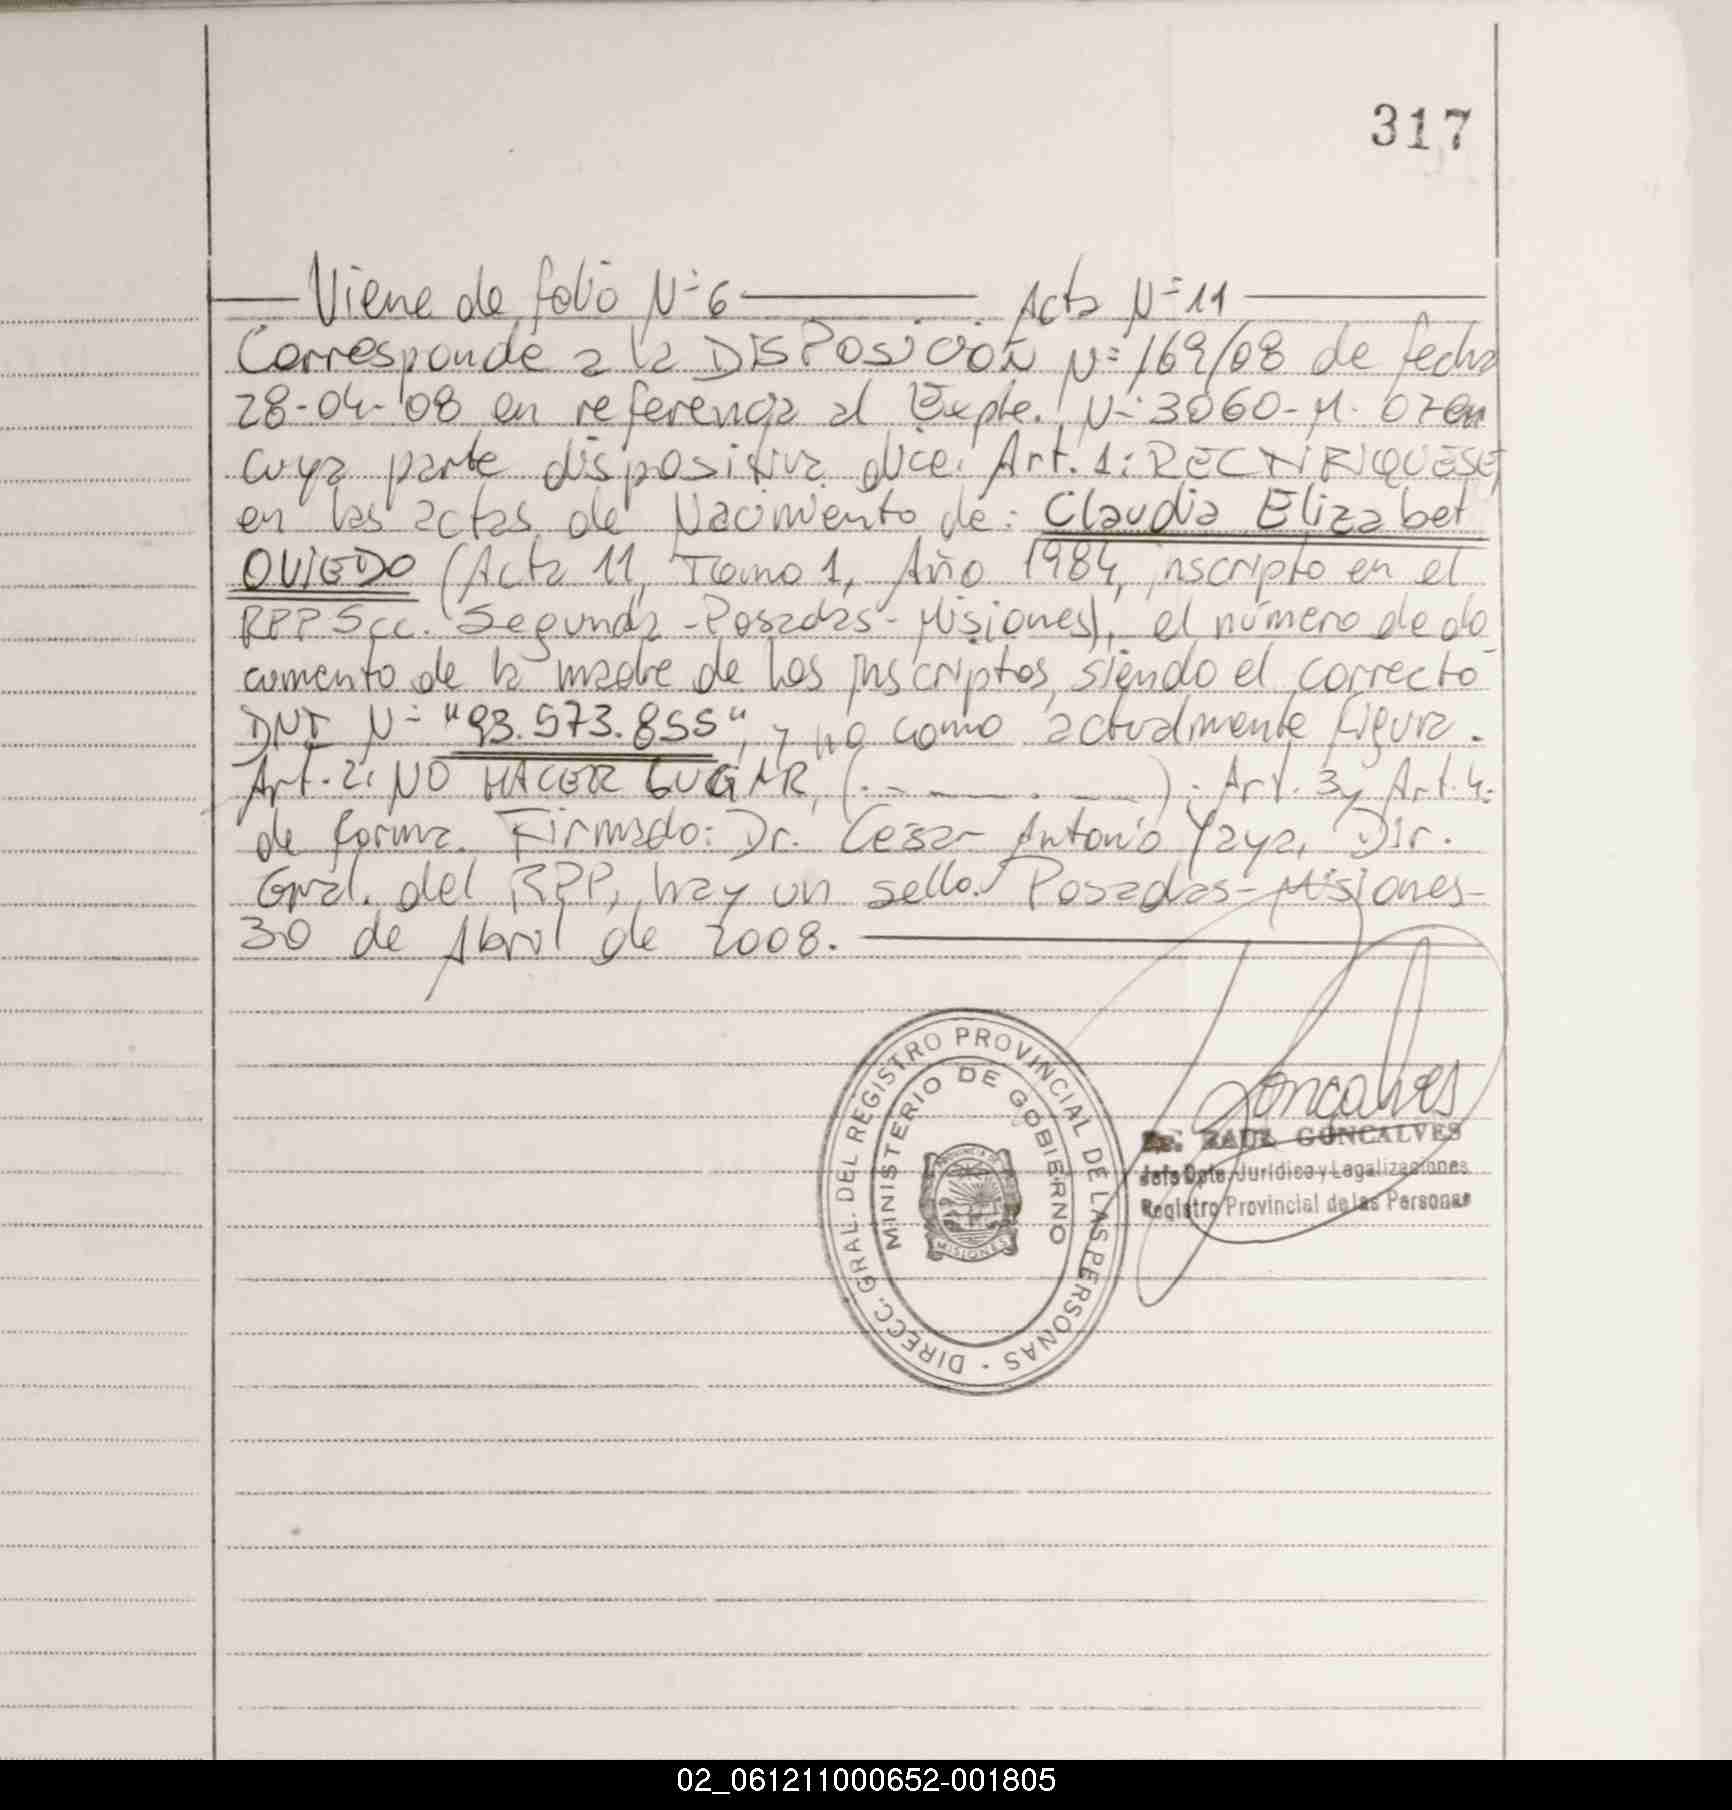 317
Viene de folio Nº 6 Acta Nº 11
Corresponde a la DISPOSICIÓN Nº 169/08 de fecha
28-04-08 en referencia al Expte. Nº 3060-M-07 en
cuya parte dispositiva dice: Art. 1: RECTIFIQUESE,
en las actas de Nacimiento de: Claudia Elizabet
OVIEDO (Acta 11, Tomo 1, Año 1984, inscripto en el
RPP Scc. Segunda -Posadas- Misiones), el número de do
cumento de la madre de los inscriptos, siendo el correcto
DNI Nº "93.573.855", y no como actualmente figura.
Art. 2: NO HACER LUGAR, (.- — . —). Art. 3 y Art. 4:
de forma. Firmado: Dr. Cesar Antonio Yaya, Dir.
Gral. del RPP, hay un sello. Posadas-Misiones-
30 de Abril de 2008.
DIRECC. GRAL. DEL REGISTRO PROVINCIAL DE LAS PERSONAS
MINISTERIO DE GOBIERNO
PROVINCIA DE
MISIONES
Goncalves
Dr. RAUL GONCALVES
Jefe Dpto. Jurídico y Legalizaciones
Registro Provincial de las Personas
02_061211000652-001805